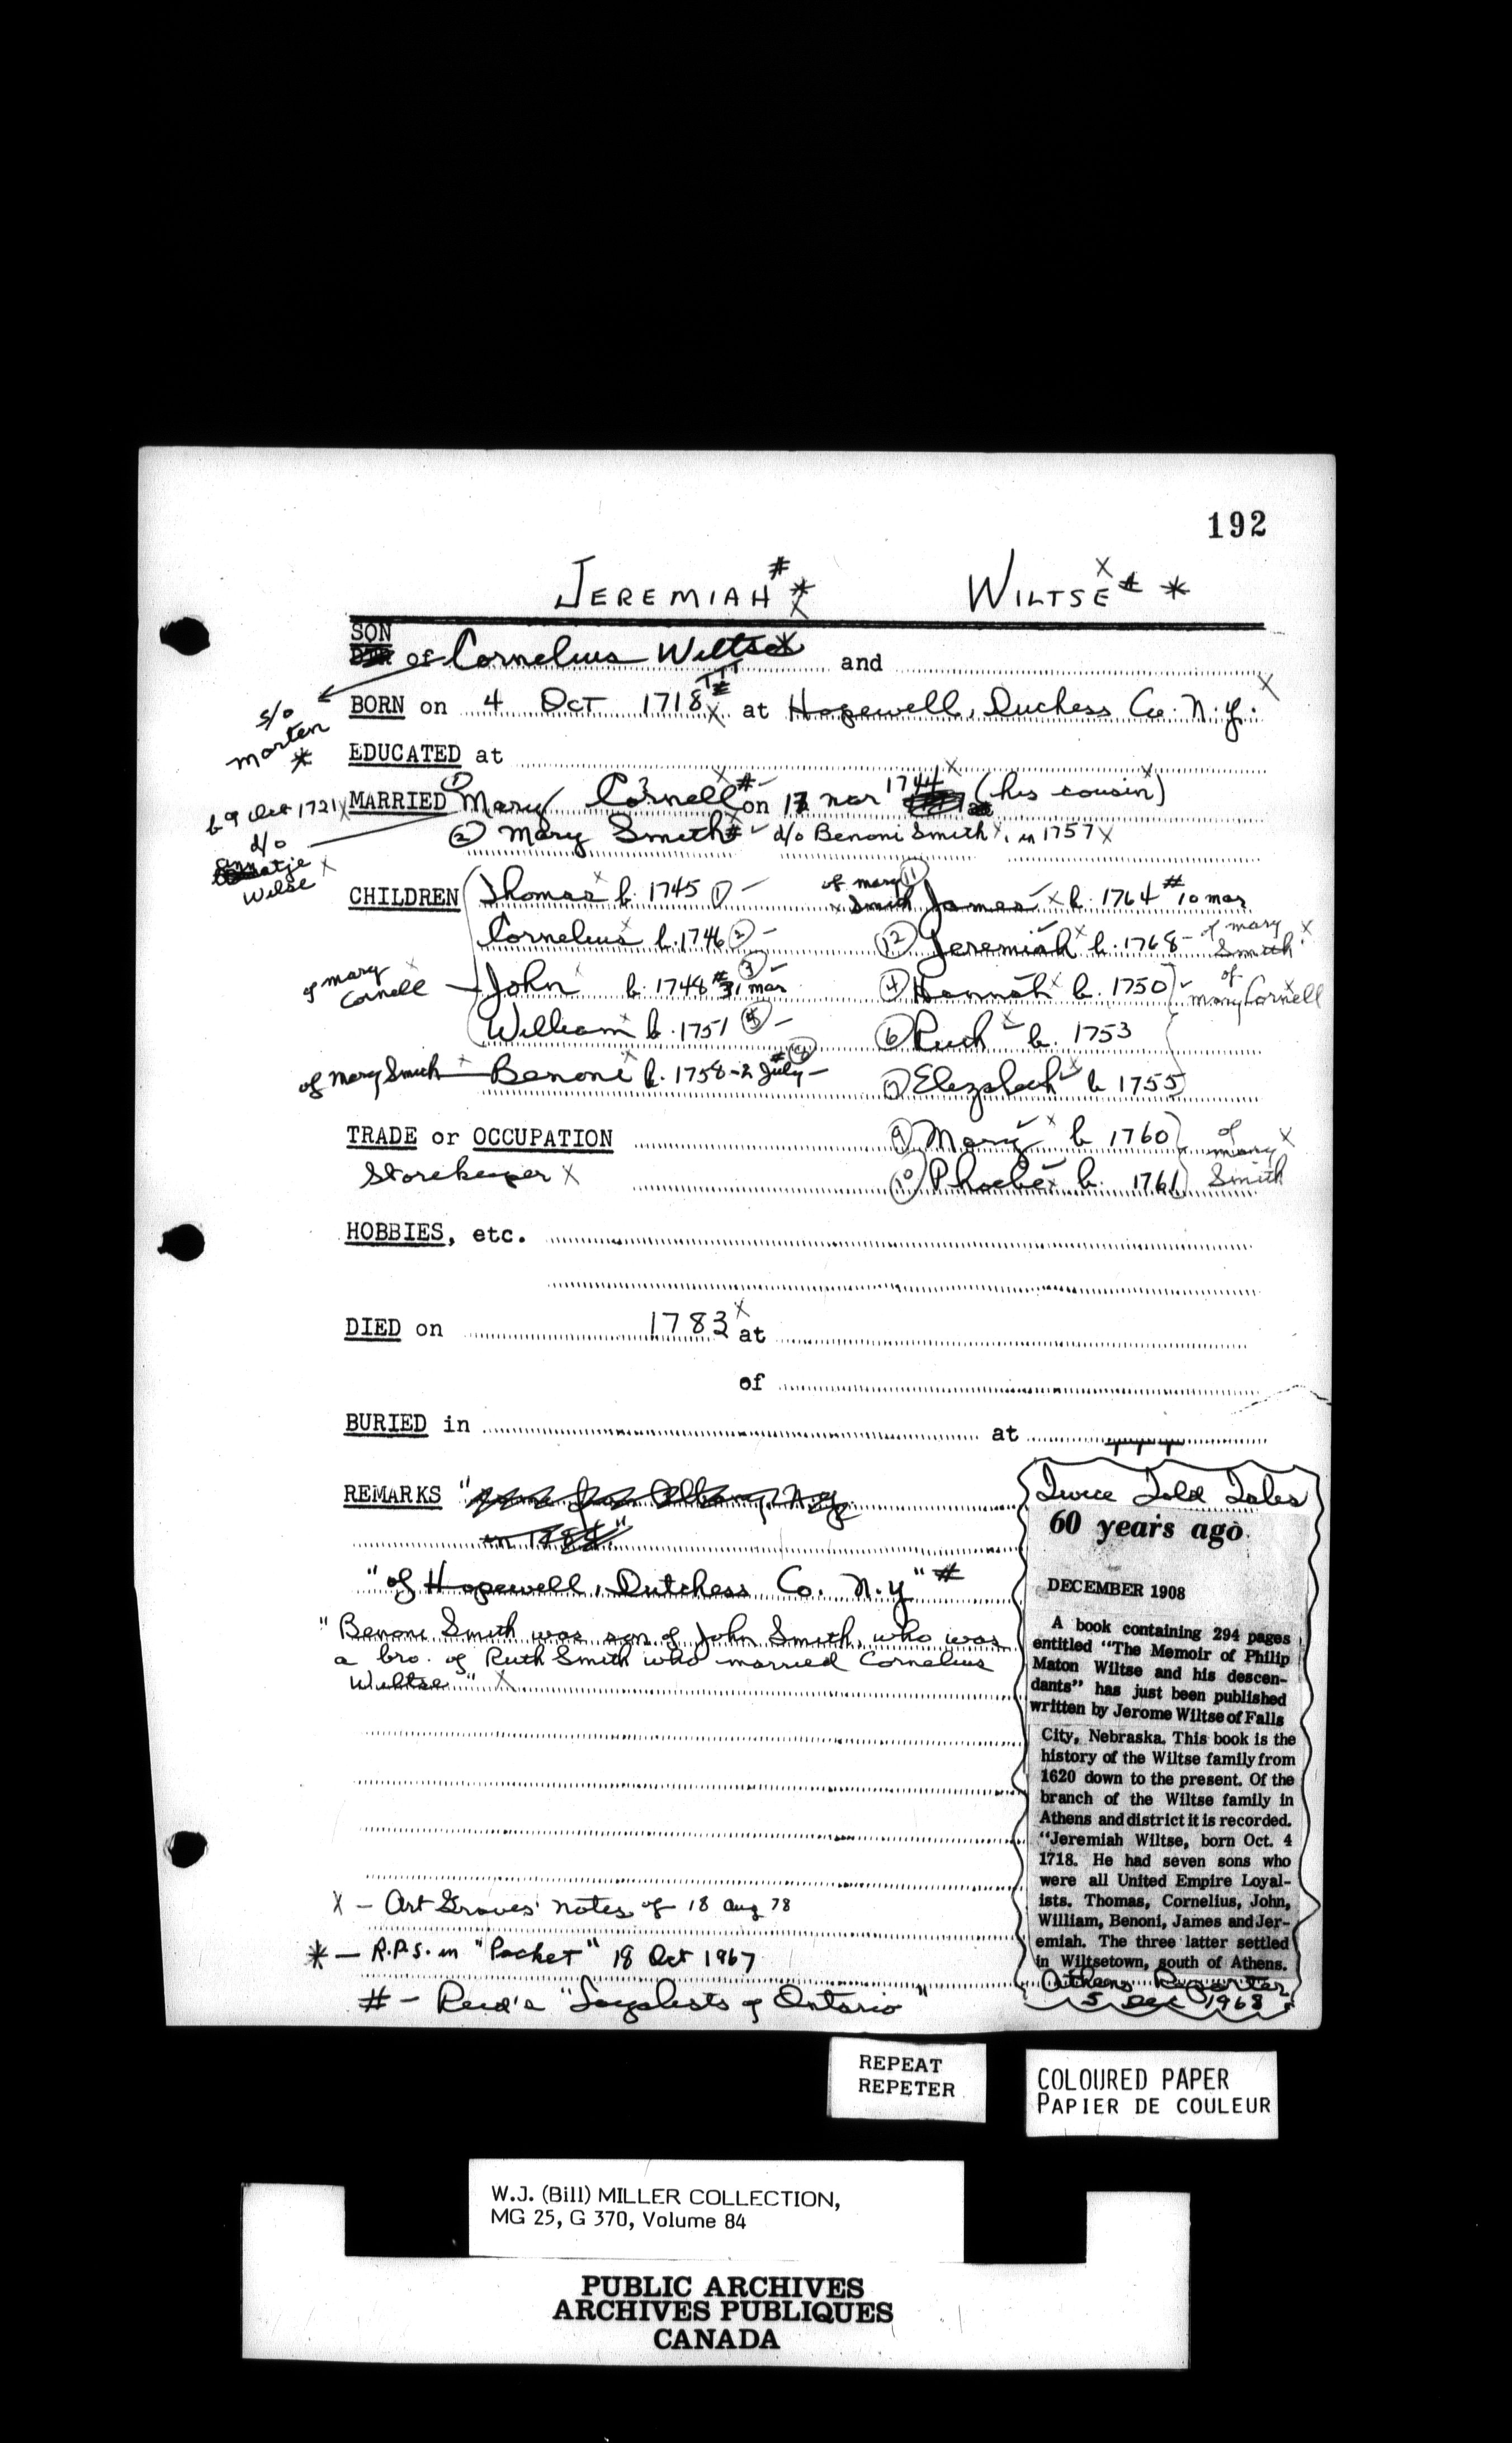 192
JEREMIAH # * X WILTSE X # *
SON
of Cornelius Wiltse X and
s/o
Morten
*
BORN on 4 Oct 1718 # X at Hopewell, Duchess Co. N.Y. X
EDUCATED at
b 9 Oct 1721 X
d/o
Wilse X
MARRIED ① Mary Cornell X # on 17 mar 1744 X (his cousin) X
② Mary Smith X # d/o Benoni Smith X, in 1757 X
CHILDREN
Thomas X b. 1745 ① -
Cornelius X b. 1746 ② -
of Mary X
Cornell
John X b. 1748 # 31 mar ③ -
William X b. 1751 ⑤ -
of Mary Smith X Benoni X b. 1758 - 2 July # ⑧ -
of Mary X Smith ⑪ James X b. 1764 # 10 mar
⑫ Jeremiah X b. 1768 - of Mary Smith X
④ Hannah X b. 1750
of
Mary Cornell X
⑥ Ruth b. 1753
⑦ Elizabeth X b 1755
TRADE or OCCUPATION
Storekeeper X
⑨ Mary X b 1760
⑩ Phoebe X b. 1761
of
Mary X
Smith
HOBBIES, etc.
DIED on 1783 X at
of
BURIED in at
REMARKS
"of Hopewell, Dutchess Co. N.Y" #
"Benoni Smith was son of John Smith, who was
a bro. of Ruth Smith who married Cornelius
Wiltse" X
X - Art Graves' notes of 18 Aug 78
* - R.P.S. in "Packet" 18 Oct 1967
# - Reid's "Loyalists of Ontario"
Twice Told Tales
60 years ago
DECEMBER 1908
A book containing 294 pages
entitled "The Memoir of Philip
Maton Wiltse and his descen-
dants" has just been published
written by Jerome Wiltse of Falls
City, Nebraska. This book is the
history of the Wiltse family from
1620 down to the present. Of the
branch of the Wiltse family in
Athens and district it is recorded.
"Jeremiah Wiltse, born Oct. 4
1718. He had seven sons who
were all United Empire Loyal-
ists. Thomas, Cornelius, John,
William, Benoni, James and Jer-
emiah. The three latter settled
in Wiltsetown, south of Athens.
Athens Reporter
5 Dec 1968
REPEAT
REPETER
COLOURED PAPER
PAPIER DE COULEUR
W.J. (Bill) MILLER COLLECTION,
MG 25, G 370, Volume 84
PUBLIC ARCHIVES
ARCHIVES PUBLIQUES
CANADA